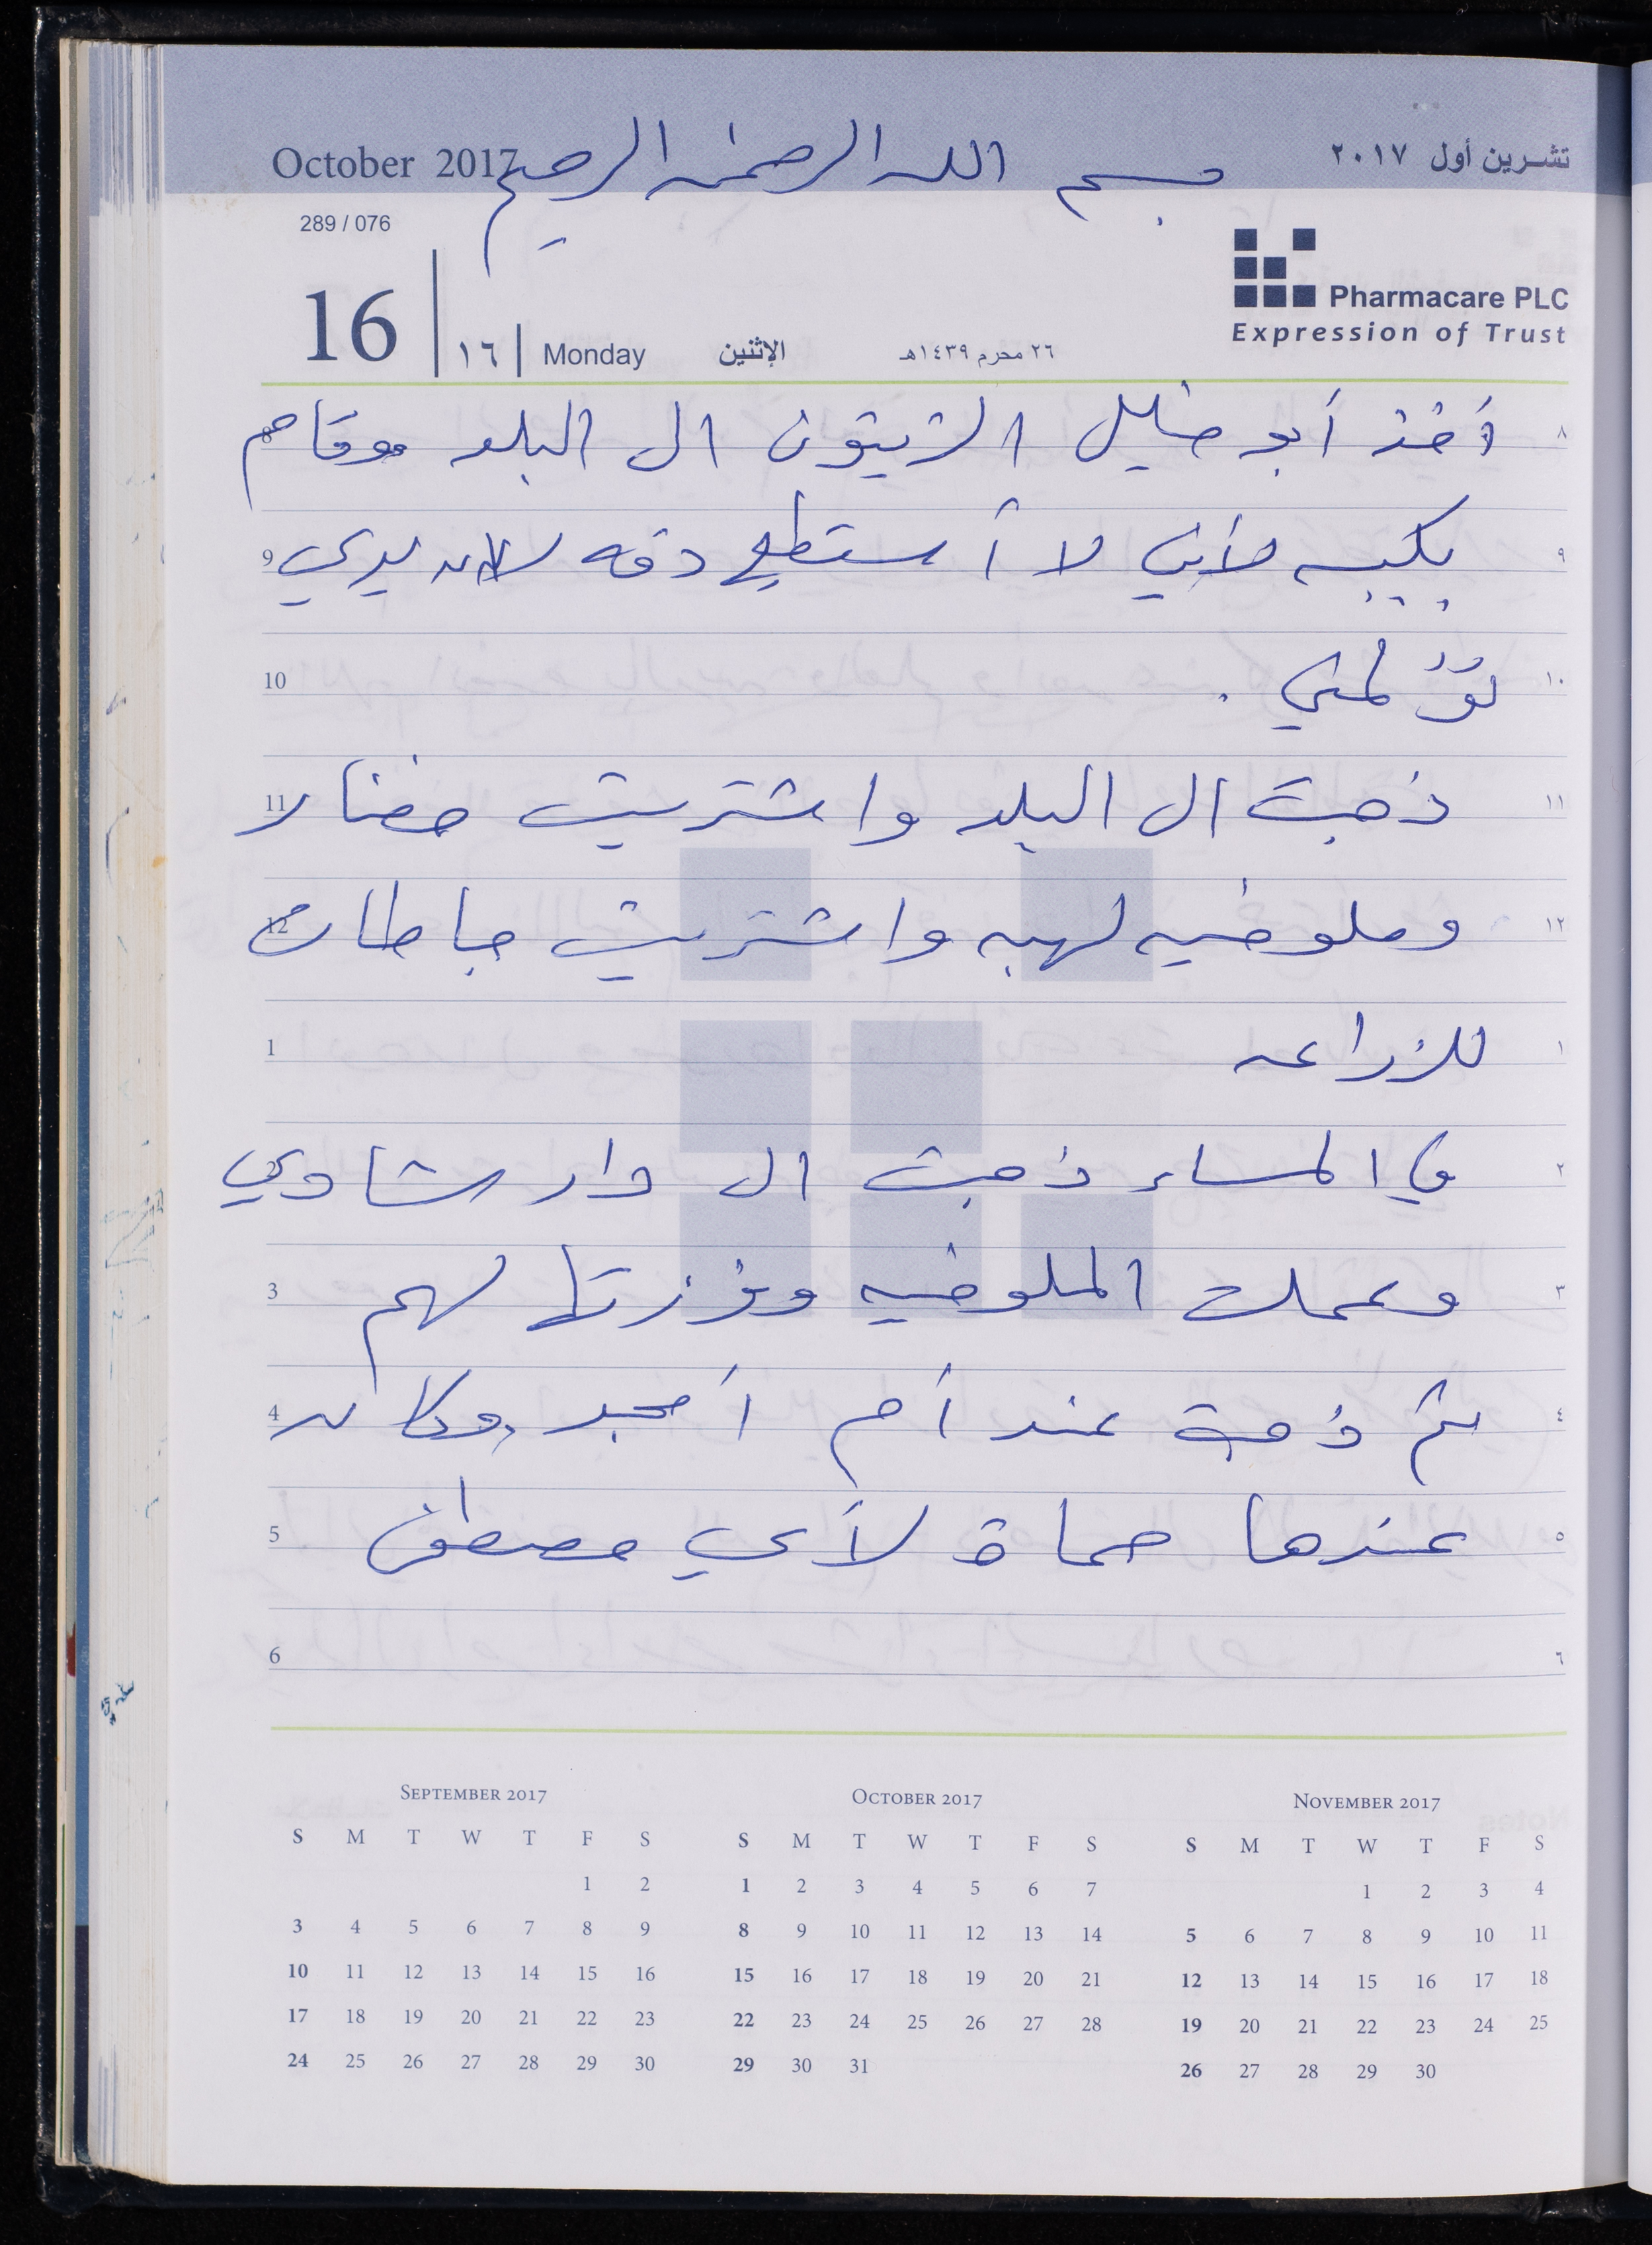 October 2017 بسم الله الرحمن الرحيم تشرين أول ٢٠١٧
289 / 076
Pharmacare PLC
Expression of Trust
16 ١٦ Monday الإثنين ٢٦ محرم ١٤٣٩هـ
8 أخذ أبو خليل الزيتون ال البلد وقام ٨
9 بكبسه لأني لا أستطيع دقه لان يدي ٩
10 تؤلمني . ١٠
11 ذهبت ال البلد واشتريت خضار ١١
12 وملوخيه لهبه واشتريت بطاطا ١٢
1 للزراعه ١
2 في المساء ذهبت ال دار شادي ٢
3 وعملت الملوخيه وفرزتها لهم ٣
4 ثم ذهبة عند أم أمجد وكان ٤
5 عندها حماة لأي مصطفى ٥
6 ٦
SEPTEMBER 2017
S M T W T F S
1 2
3 4 5 6 7 8 9
10 11 12 13 14 15 16
17 18 19 20 21 22 23
24 25 26 27 28 29 30
OCTOBER 2017
S M T W T F S
1 2 3 4 5 6 7
8 9 10 11 12 13 14
15 16 17 18 19 20 21
22 23 24 25 26 27 28
29 30 31
NOVEMBER 2017
S M T W T F S
1 2 3 4
5 6 7 8 9 10 11
12 13 14 15 16 17 18
19 20 21 22 23 24 25
26 27 28 29 30